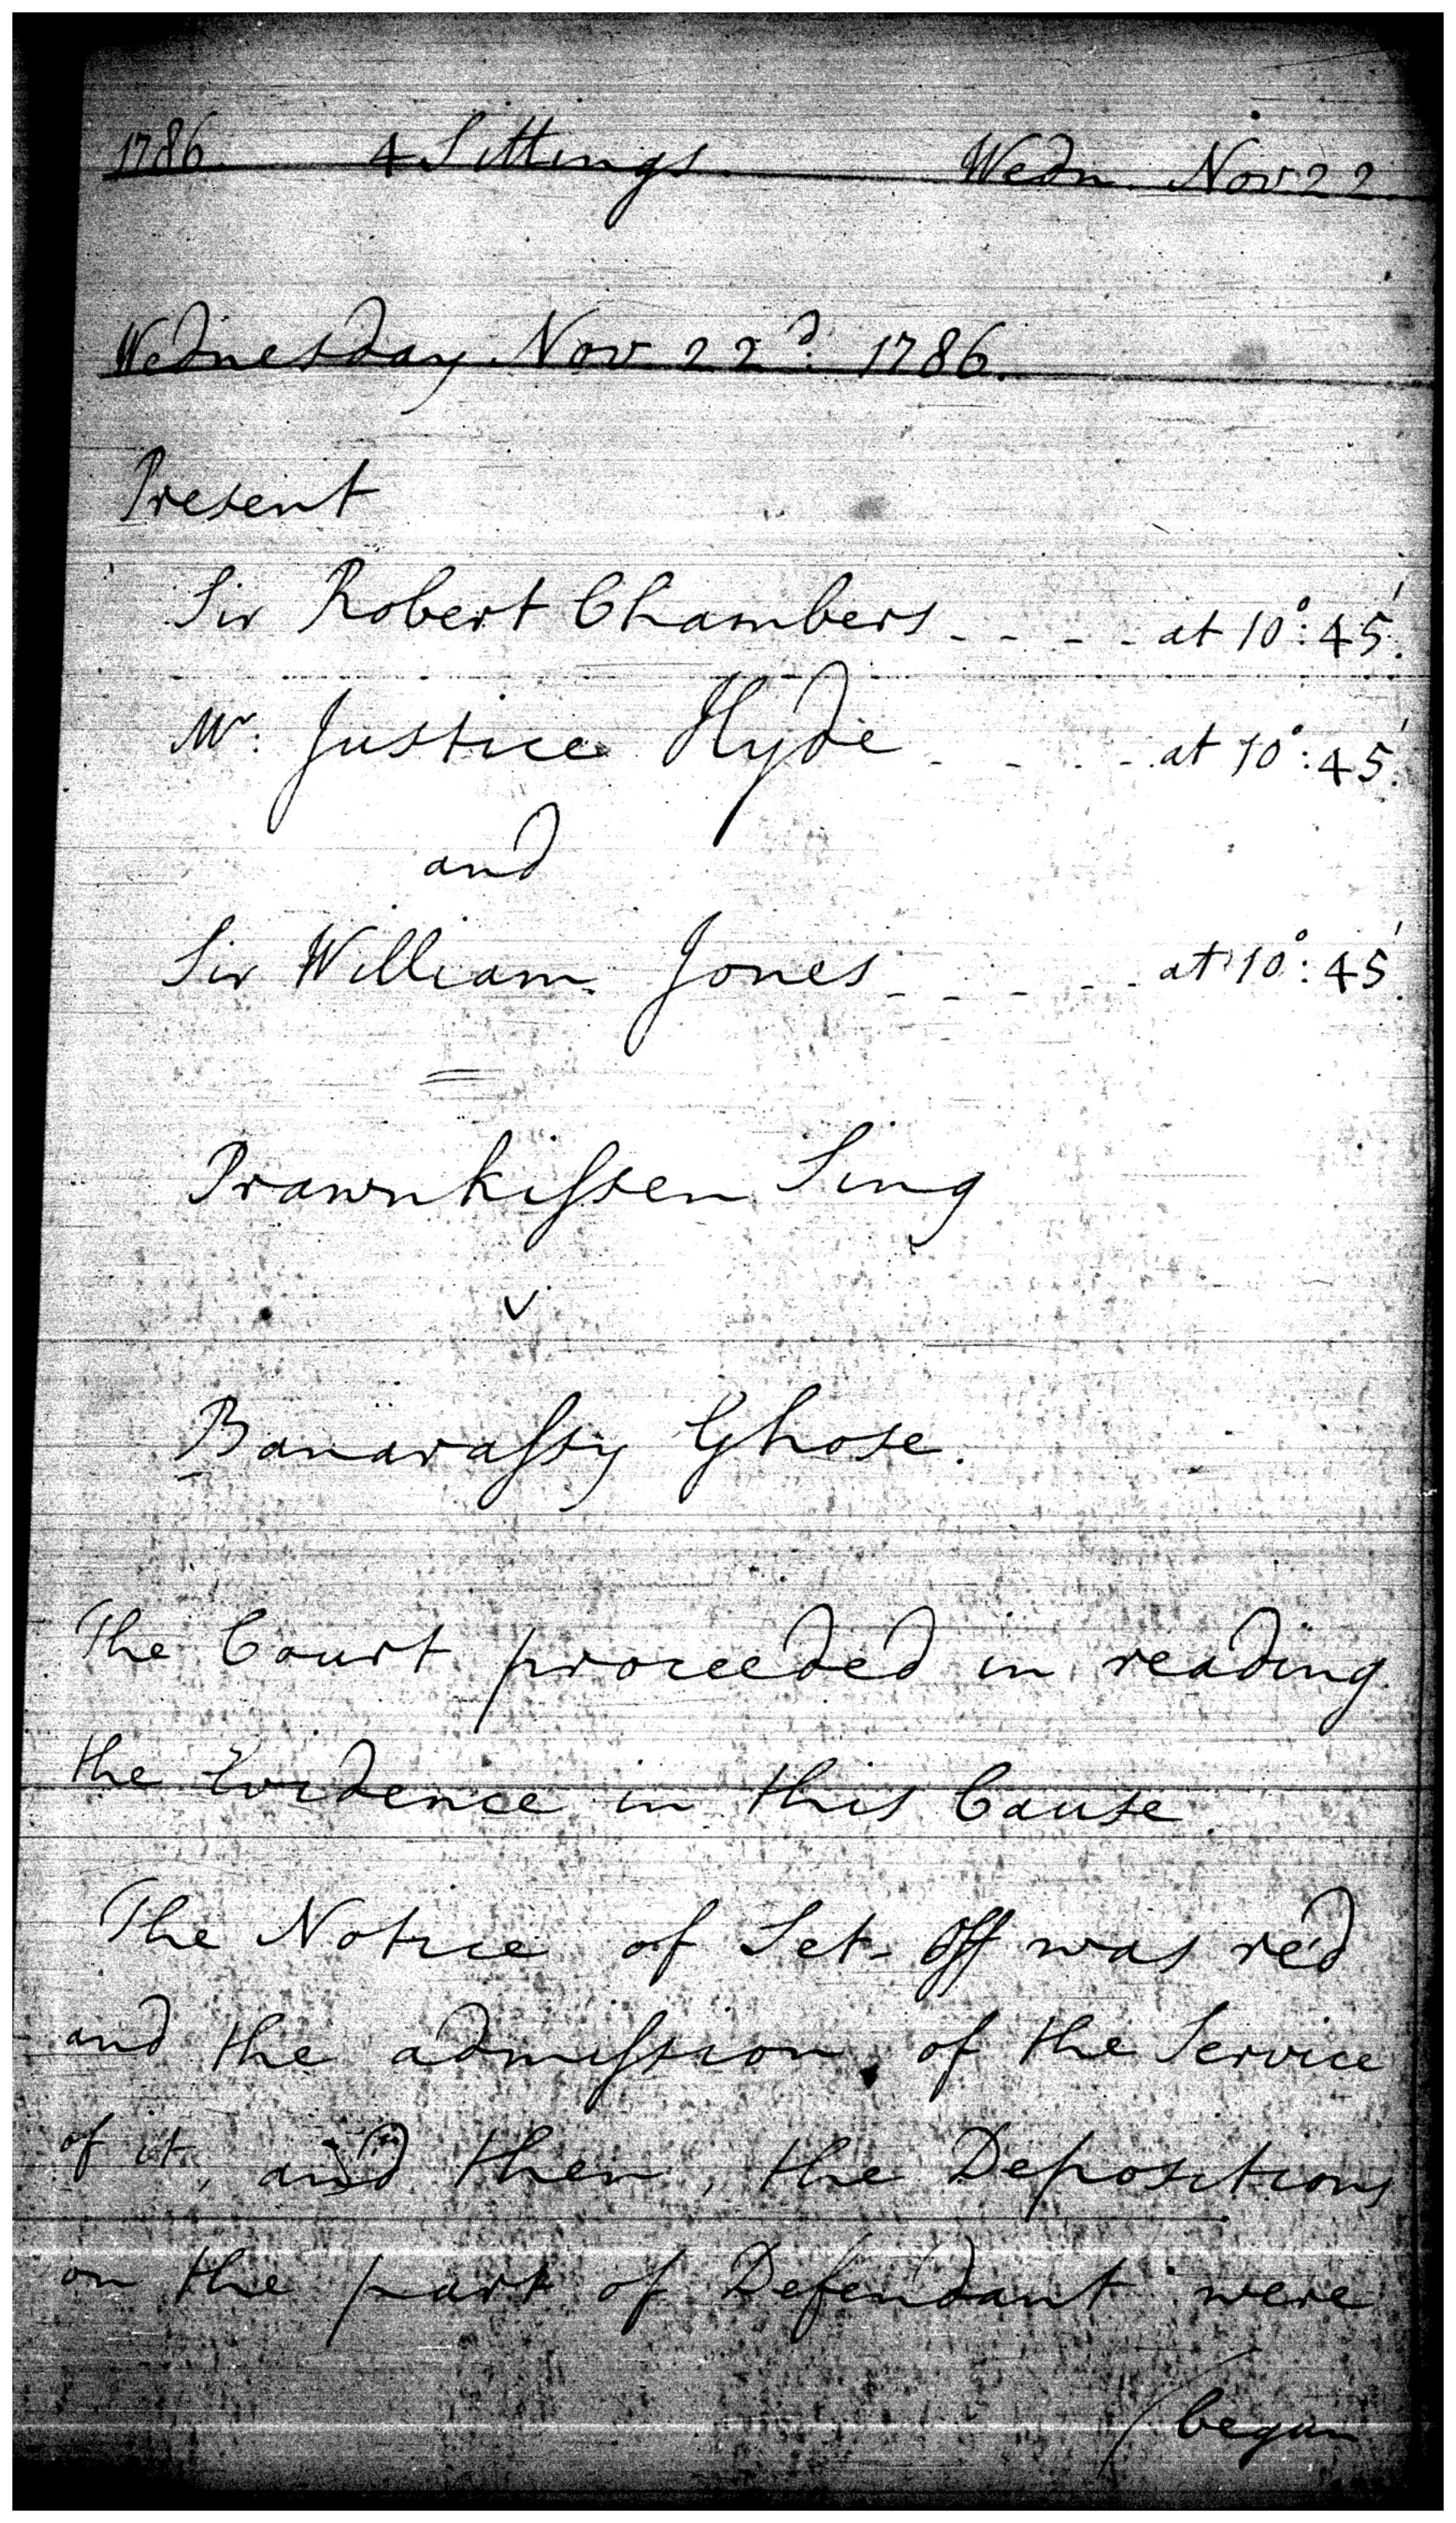 1786. 4 Sittings. Wedn. Nov 22
Wednesday Nov 22d. 1786.
Present
Sir Robert Chambers - - - - at 10°: 45'.
Mr. Justice Hyde - - - - at 10°: 45'.
and
Sir William Jones - - - - - at 10°: 45'.
Prawnkiſsen Sing
v
Banaraſsy Ghose.
The Court proceeded in reading
the Evidence in this Cause.
The Notice of Set-Off was red
and the admiſsion, of the Service
of it, and then, the Depositions
on the part of Defendant were
(began